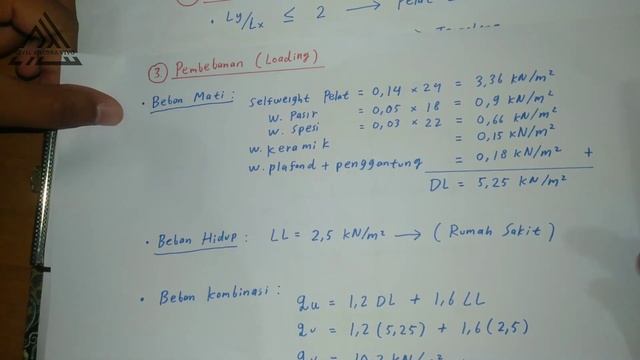 • Ly/Lx ≤ 2 →
③. Pembebanan (Loading)
• Beban Mati : Selfweight Pelat = 0,14 × 24 = 3,36 kN/m²
w. Pasir = 0,05 × 18 = 0,9 kN/m²
w. Spesi = 0,03 × 22 = 0,66 kN/m²
w. keramik = 0,15 kN/m²
w. plafond + penggantung = 0,18 kN/m² +
DL = 5,25 kN/m²
• Beban Hidup : LL = 2,5 kN/m² → (Rumah Sakit)
• Beban Kombinasi : qu = 1,2 DL + 1,6 LL
qu = 1,2 (5,25) + 1,6 (2,5)